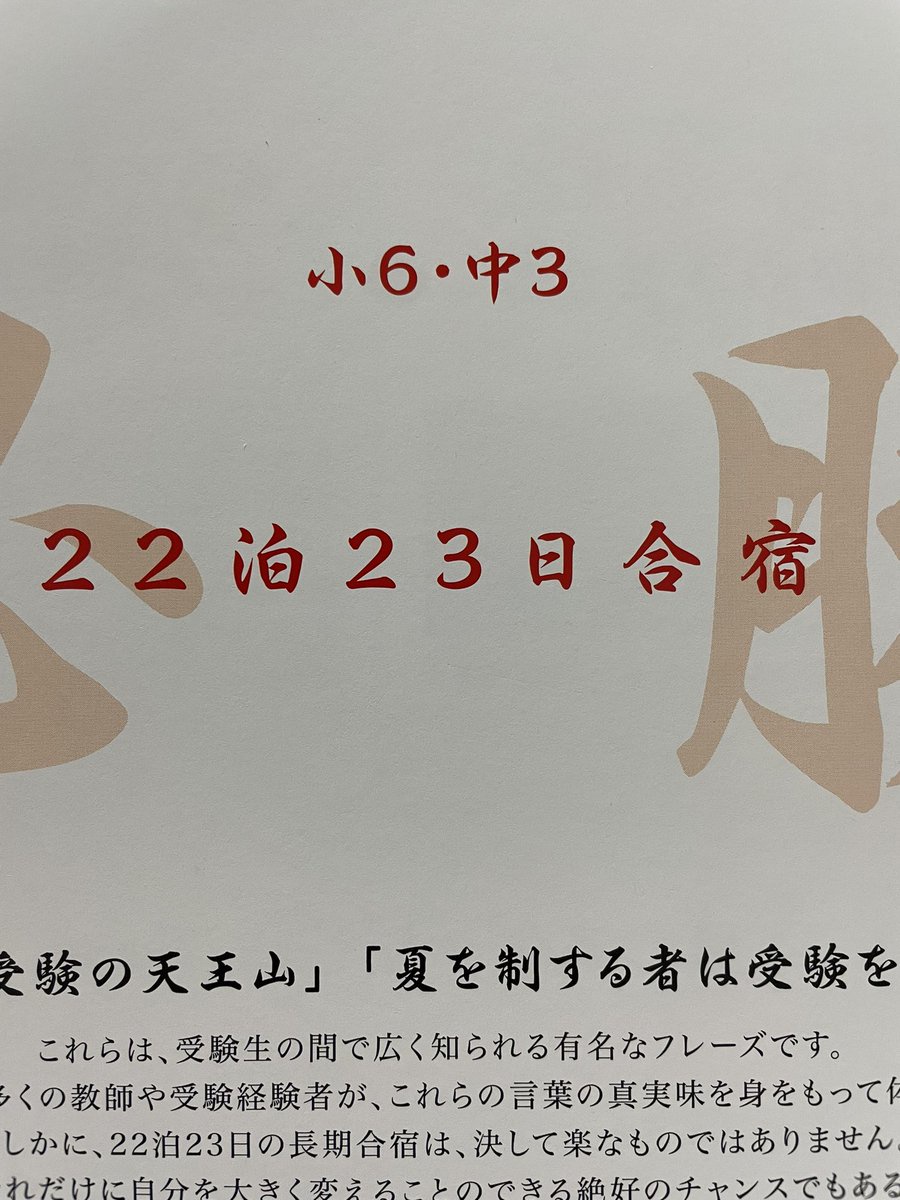 小6・中3
22泊23日合宿
受験の天王山」「夏を制する者は受験を
これらは、受験生の間で広く知られる有名なフレーズです。
多くの教師や受験経験者が、これらの言葉の真実味を身をもって体
しかに、22泊23日の長期合宿は、決して楽なものではありません。
れだけに自分を大きく変えることのできる絶好のチャンスでもある